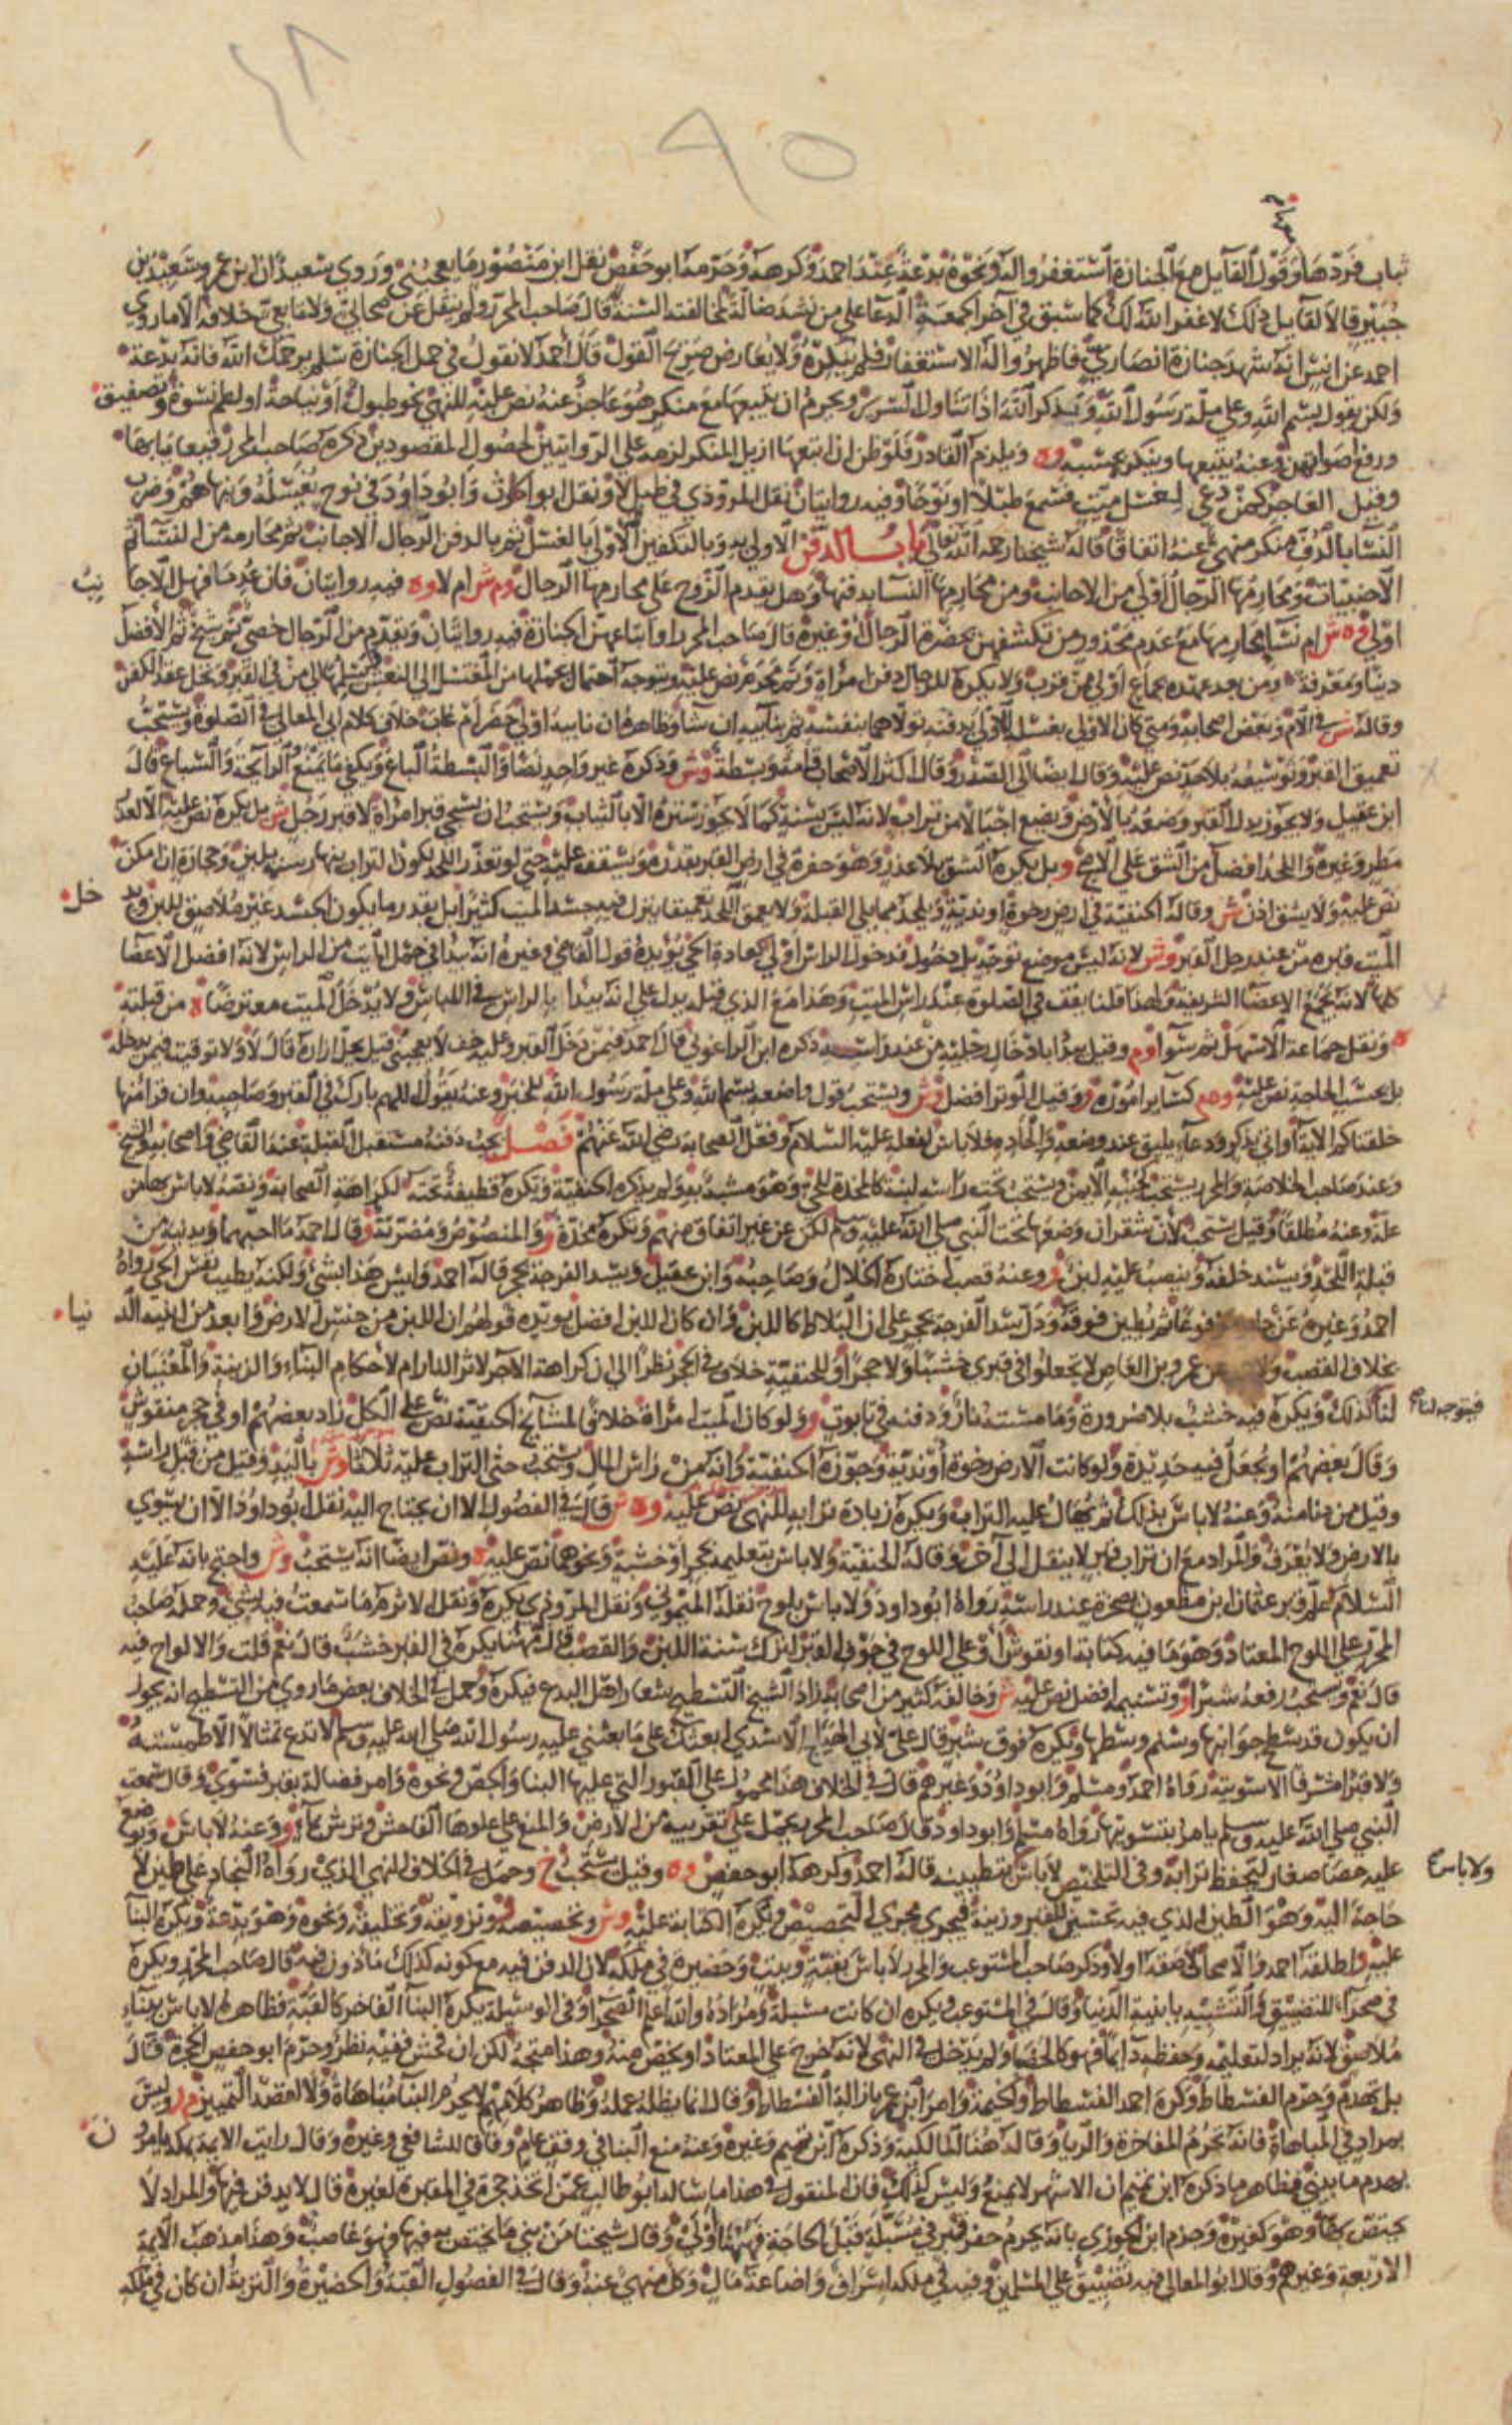 ٩٥
شاب فردها وقول القائل مع الجنازة استغفروا له ونحوه بدعة عند احمد وكرهه وحرمه ابو حفص نقل ابن منصور ما يعجبني وروى سعيد ان ابن عمر وسعيد بن
جبير قالا لقايل ذلك لا غفر الله لك كما سبق في آخر الجمعة الدعا على من نشد ضالة لمخالفته السنة قال صاحب المحرر ولم ينقل عن صحابي ولا تابعي خلافه الا ما روى
احمد عن انس انه شهد جنازة انصاري فاظهروا له الاستغفار فلم ينكره ولا يعارض صريح القول قال احمد لا نقول في حمل الجنازة سلم يرحمك الله فانه بدعة
ولكن يقول بسم الله وعلى ملة رسول الله ويذكر الله اذا تناول السرير ويحرم ان يتبعها مع منكر هو عاجز عنه نص عليه للنهي نحو طبول او نياحة او لطم نسوة وتصفيق
ورفع اصواتهن وعنه يتبعها وينكره بحسبه وه ويلزم القادر فلو ظن ان اتبعها ازيل المنكر لزمه على الروايتين لحصول المقصودين ذكره صاحب المحرر
وقيل العاجز كمن دعي لغسل ميت فسمع طبلا او نوحا وفيه روايتان نقل المروذي في طبل لا ونقل ابو الحارث وابو داود في نوح يغسله وينهاهم وضرب
النسا بالدف منكر منهي عنه اتفاقا قاله شيخنا رحمه الله تعالى باب الدفن الاولى به وبالتكفين الاولى بالغسل ثم بالدفن الرجال الاجانب ثم محارمه من النساء ثم
الاجنبيات ومحارمها الرجال اولى من الاجانب ومن محارمها النساء بدفنها وهل يقدم الزوج على محارمها الرجال وم ش ام لا وه فيه روايتان فان عدما فهل الاجا
نب
اولى وه ش ام نسا محارمها مع عدم محذور من تكشفهن بحضرة الرجال او غيره قال صاحب المحرر او اتباعهن الجنازة فيه روايتان ويقدم من الرجال خصي ثم شيخ ثم الافضل
دينا ومعرفة ومن بعد عهده بجماع اولى ممن قرب ولا يكره للرجال دفن امراة وثم محرم نص عليه ويتوجه احتمال يحملها من المغتسل الى النعش ويسلمها الى من في القبر ويحل عقد الكفن
وقاله ش في الام وبعض اصحابه ومتى كان الاولى بغسله الاولى بدفنه تولاهما بنفسه ثم بنائبه ان شا وظاهره ان نايبه اولى حضر ام غاب خلاف كلام ابي المعالي في الصلوة ويستحب
تعميق القبر وتوسيعه بلا حد نص عليه وقال ايضا الى الصدر وقال اكثر الاصحاب قامة وبسطة وش وذكره غير واحد نصا والبسطة الباع ويكفي ما يمنع الرايحة والسباع قال
ابن عقيل ولا يجوز بدل القبر وضعه بالارض ويضع اجبالا من تراب لانه ليس بسنة كما لا يجوز ستره الا بالثياب ويستحب ان يسجى قبر امراة لا قبر رجل ش بل يكره نص عليه الا لعذر
مطر وغيره واللحد افضل من الشق على الاصح و بل يكره الشق بلا عذر وهو حفرة في ارض القبر بقدره ويسقف عليه حتى لو تعذر اللحد لكون التراب ينهار سنمه بلبن وحجارة ان امكن
نص عليه ولا يشق اذن ش وقاله الحنفية في ارض رخوة او ندية ويلحد مما يلي القبلة ولا يعمق اللحد تعميقا ينزل فيه جسد الميت كثيرا بل بقدر ما يكون الجسد غير ملاصق للبن ويد
خل
الميت قبره من عند رجل القبر وش لانه ليس موضع توجه بل دخول فدخول الراس اولى كعادة الحي يؤيده قول القاضي وغيره انه يبدا في حمل الميت من الراس لانه افضل الاعضا
كلها لانه يجمع الاعضا الشريفة ولهذا قلنا يقف في الصلوة عند راس الميت وهذا مع الذي قبله يدل على انه يبدا بالراس في اللباس ولا يدخل الميت معترضا ه من قبلته
ه ونقل جماعة الاسهل ثم سوا وم وقيل يبدا بادخال رجليه من عند راسه ذكره ابن الزاغوني قال احمد فيمن دخل القبر وعليه خف لا يعجبني قيل يحل ازاره قال لا ولا توقيت فيمن يدخله
بل بحسب الحاجة نص عليه وهم كسائر اموره و وقيل الوتر افضل وش ويستحب قول واضعه بسم الله وعلى ملة رسول الله للخبر وعنه يقول اللهم بارك في القبر وصاحبه وان قرا منها
خلقناكم الاية او اتى بذكر ودعاء يليق عند وضعه والحاده فلا باس لفعله عليه السلام وفعل الصحابة رضي الله عنهم فصل يجب دفنه مستقبل القبلة عند القاضي واصحابه والشيخ
وعند صاحب الخلاصة والمحرر يستحب كجنبه الايمن ويستحب تحت راسه لبنة كالمخدة للحي وهو مشبه به ولم يذكره الحنفية وتكره قطيفة تحته لكراهة الصحابة ونصه لا باس بها من
علة وعنه مطلقا وقيل يستحب لان شقران وضعها تحت النبي صلى الله عليه وسلم لكن عن غير اتفاق منهم وتكره مخدة و والمنصوص ومضربة و وقال احمد ما احبهما ويدنيه من
قبلة اللحد ويسند خلفه وينصب عليه لبن و وعنه قصب اختاره الخلال وصاحبه وابن عقيل ويسد الفرجة بحجر قاله احمد وليس هذا بشيء ولكنه يطيب نفس الحي رواه
احمد وغيره عن مرفوعا ثم يطين فوقه ودل سد الفرجة بحجر على ان البلاط كاللبن وان كان اللبن افضل يؤيده قولهم ان اللبن من جنس الارض وابعد من ابنية الد
نيا
بخلاف القصب عن عمرو بن العاص لا تجعلوا في قبري خشبا ولا حجرا وللحنفية خلاف في الحجر نظرا الى ان كراهة الاجر لاثر النار ام لاحكام البناء والزينة والمعنيان
فيتوجه لنا
لنا كذلك ويكره فيه خشب بلا ضرورة وما مسته نار ودفنه في تابوت و ولو كان الميت امراة خلافا لمشايخ الحنفية نص على الكل زاد بعضهم او في حجر منقوش
وقال بعضهم او يجعل فيه حديد و ولو كانت الارض رخوة او ندية وجوزه الحنفية وانه من راس المال ويستحب حثي التراب عليه ثلاثا وش باليد وقيل من قبل راسه
وقيل من دنا منه وعنه لا باس بذلك ثم يهال عليه التراب ويكره زيادة ترابه للنهي نص عليه وه ش قال في الفصول الا ان يحتاج اليه نقل ابو داود الا ان يستوي
بالارض ولا يعرف والمراد مع ان تراب قبر لا ينقل الى آخر وقاله الحنفية ولا باس بتعليمه بحجر او خشبة ونحوهما نص عليه ه ونص ايضا انه يستحب وش واحتج بانه عليه
السلام علم قبر عثمان ابن مظعون بصخرة عند راسه رواه ابو داود ولا باس بلوح نقله الميموني ونقل المروذي يكره ونقل الاثرم ما سمعت فيه بشيء وحمله صاحب
المحرر على اللوح المعتاد وهو ما فيه كتابة او نقوش او على اللوح في جوف القبر لترك سنة اللبن والقصب قال مهنا يكره في القبر خشب قال نعم قلت والالواح فيه
قال نعم ويستحب رفعه شبرا و وتسنيمه افضل نص عليه ش وخالفه كثير من اصحابه زاد الشيخ التسطيح شعار اهل البدع فيكره وحمل في الخلاف بعض ما روي من التسطيح انه يجوز
ان يكون قد سطح جوانبها وسنم وسطها ويكره فوق شبر قال علي لابي الهياج الاسدي ابعثك على ما بعثني عليه رسول الله صلى الله عليه وسلم لا تدع تمثالا الا طمسته
ولا قبرا مشرفا الا سويته رواه احمد ومسلم وابو داود وغيرهم قال في الخلاف هذا محمول على القبور التي عليها البنا والجص ونحوه وامر فضالة بقبر فسوي وقال سمعت
النبي صلى الله عليه وسلم يامر بتسويتها رواه مسلم وابو داود قال صاحب المحرر يحمل على تقريبه من الارض والمنع على علوها الفاحش وترش بماء و وعنه لا باس ويوضع
عليه حصا صغار ليحفظ ترابه وفي التلخيص لا باس بتطيينه قاله احمد وكرهه ابو حفص وه وقيل يستحب خ وحمل في الخلاف النهي الذي رواه النجاد على طين لا
ولا باس
حاجة اليه وهو الطين الذي فيه تحسين للقبر وزينة فيجري مجرى التجصيص وتكره الكتابة عليه وش وتجصيصه و وتزويقه وتخليقه ونحوه وهو بدعة ويكره البنا
عليه واطلقه احمد والاصحاب لاصقه اولا وذكر صاحب المستوعب والمحرر لا باس بقبة وبيت وحضيرة في ملكه لان الدفن فيه مع كونه كذلك ماذون فيه قال صاحب المحرر ويكره
في صحراء للتضييق والتشبيه بابنية الدنيا وقال في المستوعب ويكره ان كانت مسبلة ومراده والله اعلم الصحرا وفي الوسيلة يكره البنا الفاخر كالقبة فظاهره لا باس ببناء
ملاصق لانه يراد لتعليمه وحفظه دائما فهو كالحصا ولم يدخل في النهي لانه خرج على المعتاد او يخص منه وهذا متجه لكن ان فحش ففيه نظر وحرم ابو حفص الحجرة قال
بل تهدم وحرم الفسطاط وكره احمد الفسطاط والخيمة وامر ابن عمر بازالة الفسطاط وقال انما يظله عمله وظاهر كلامهم لا يحرم البنا مباهاة ولا لقصد التمييز م ر وليس
بمراد في المباهاة فانه يحرم المفاخرة والريا وقاله هنا المالكية وذكره ابن تميم وغيره وعنه منع البنا في وقف عام وفاقا للشافعي وغيره وقال رايت الايمة بمكة يامرو
ن
بهدم ما يبنى فظاهر ما ذكره ابن تميم ان الاشهر لا يمنع وليس كذلك فان المنقول في هذا ما سال ابو طالب عمن اتخذ حجرة في المقبرة لغيره قال لا يدفن فيها والمراد لا
يختص بها وهو كغيره وجزم ابن الجوزي بانه يحرم حفر قبر في مسبلة قبل الحاجة فههنا اولى وقال شيخنا من بنى ما يختص به فيها فهو غاصب وهذا مذهب الايمة
الاربعة وغيرهم وقال ابو المعالي فيه تضييق على المسلمين وفيه في ملكه اسراف واضاعة مال وكل منهي عنه وقال في الفصول القبة والحضيرة والتربة ان كان في ملكه